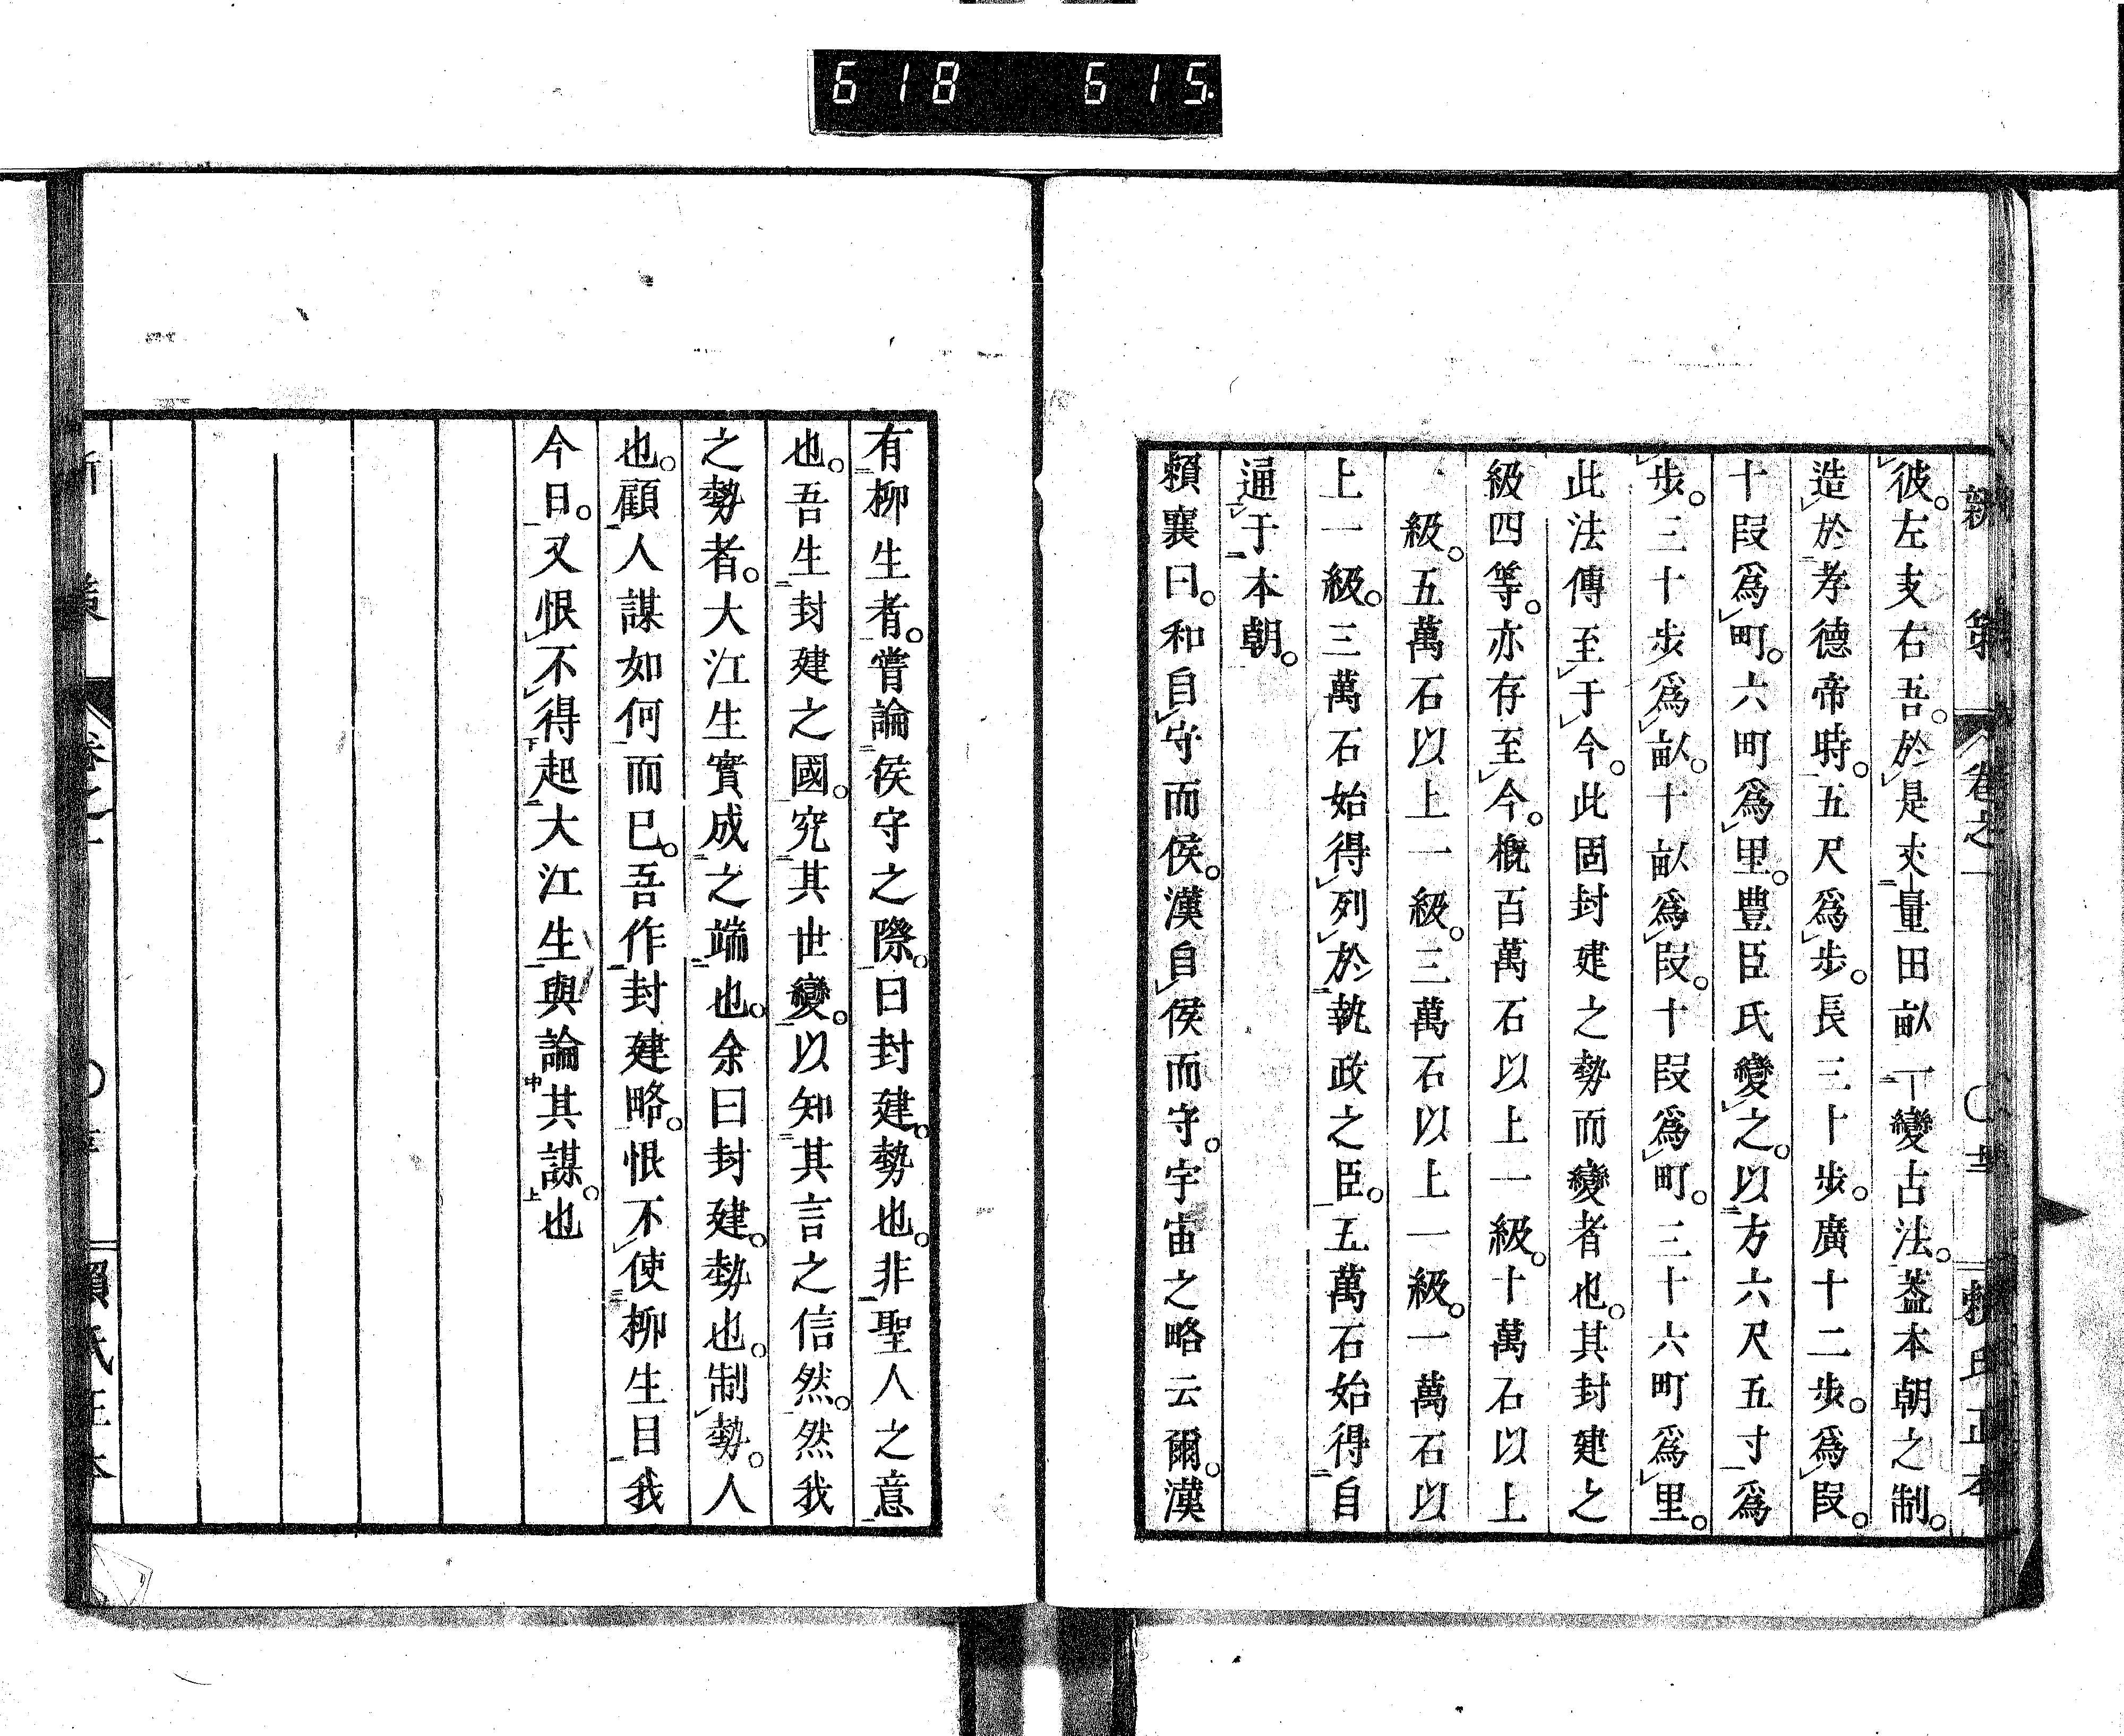 618 615
新策
卷之一
賴氏正本
彼。左支右吾。於是丈量田畝一變古法。蓋本朝之制。
造於孝德帝時。五尺爲步。長三十步。廣十二步。爲段。
十段爲町。六町爲里。豊臣氏變之。以方六尺五寸爲
步。三十步爲畝。十畝爲段。十段爲町。三十六町爲里。
此法傳至于今。此固封建之勢而變者也。其封建之
級四等。亦存至今。概百萬石以上一級。十萬石以上
級。五萬石以上一級。三萬石以上一級。一萬石以
上一級。三萬石始得列於執政之臣。五萬石始得自
通于本朝。
賴襄曰。和自守而侯。漢自侯而守。宇宙之略云爾。漢
有柳生者。嘗論侯守之際。曰封建。勢也。非聖人之意
也。吾生封建之國。究其世變。以知其言之信然。然我
之勢者。大江生實成之端也。余曰封建。勢也。制勢。人
也。顧人謀如何而已。吾作封建略。恨不使柳生目我
今日。又恨不得起大江生與論其謀。也
卷之一
賴氏正本